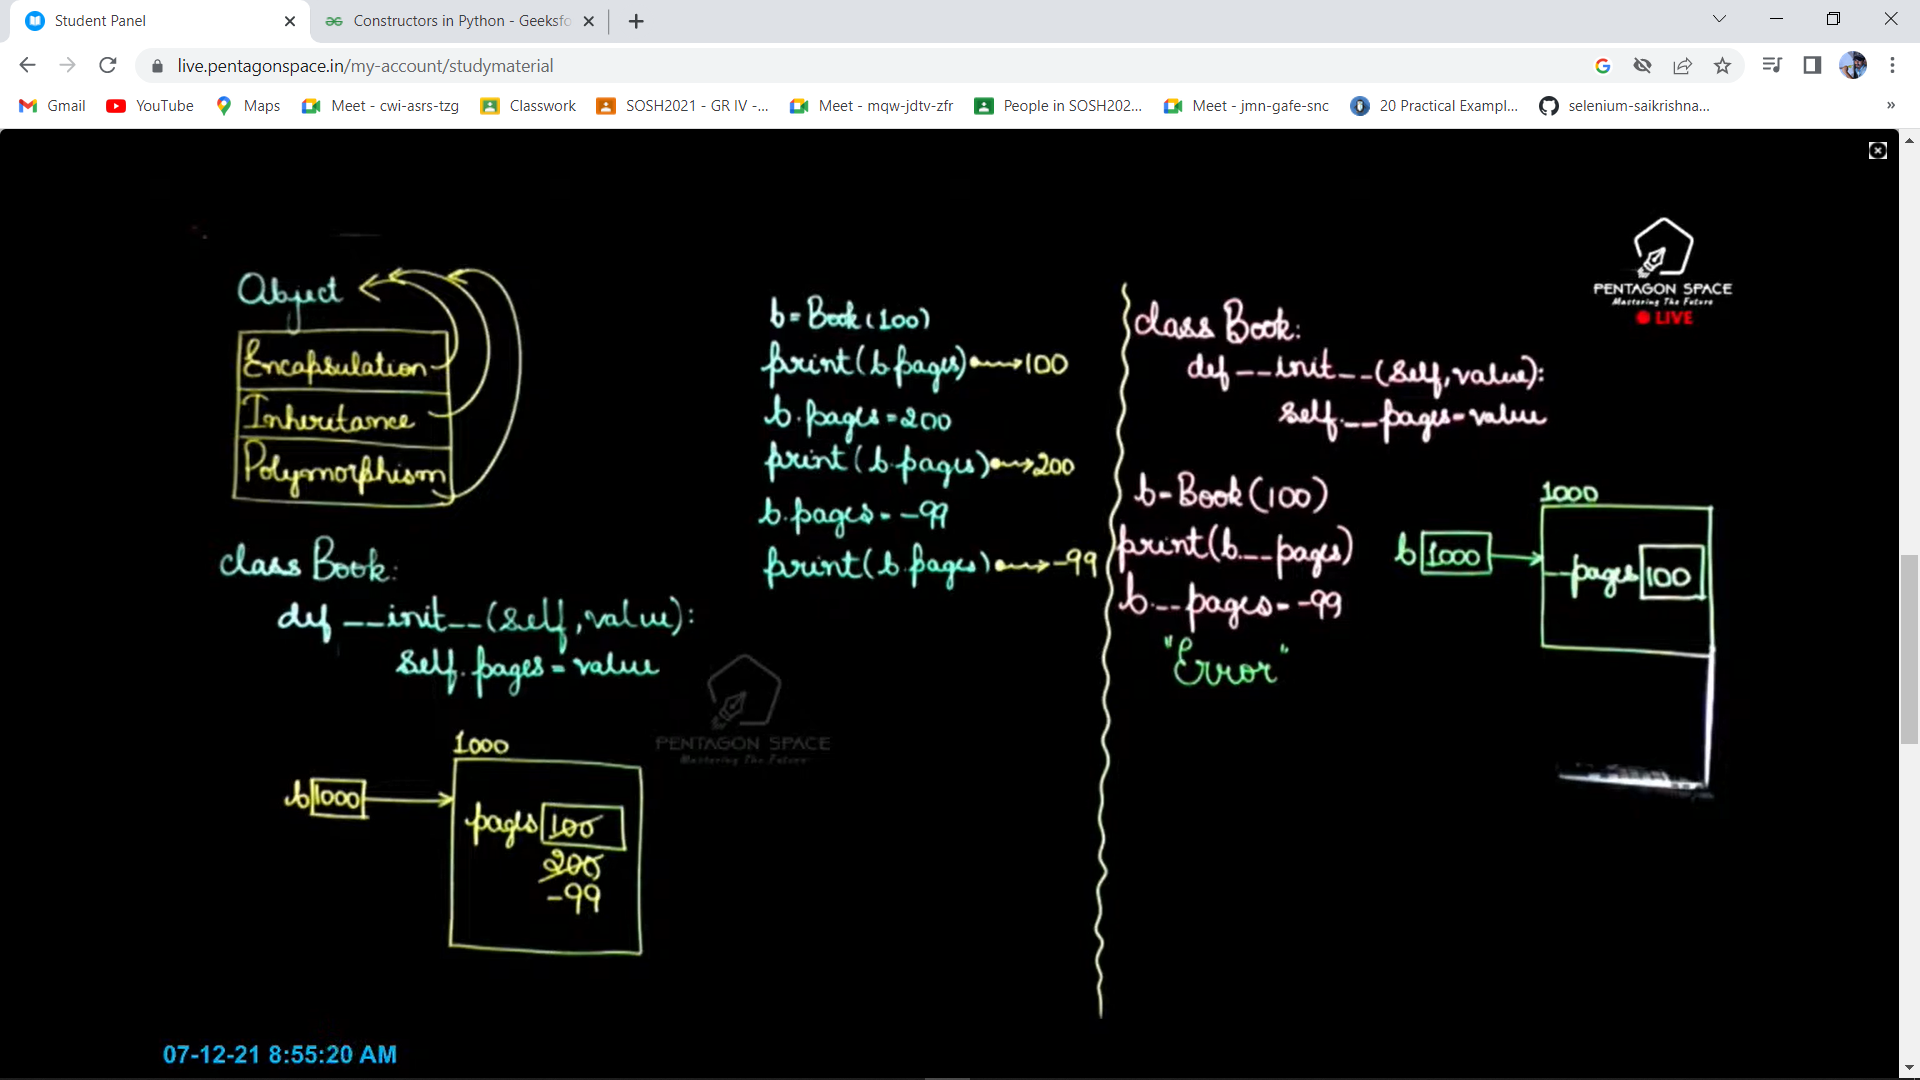 Student Panel
Constructors in Python - Geeksfo
live.pentagonspace.in/my-account/studymaterial
Gmail
YouTube
Maps
Meet - cwi-asrs-tzg
Classwork
SOSH2021 - GR IV -...
Meet - mqw-jdtv-zfr
People in SOSH202...
Meet - jmn-gafe-snc
20 Practical Exampl...
selenium-saikrishna...
»
PENTAGON SPACE
Mastering The Future
LIVE
Object
Encapsulation
Inheritance
Polymorphism
class Book:
def __init__(self,value):
self.pages=value
1000
b 1000
pages 100
200
-99
b=Book(100)
print(b.pages) 100
b.pages=200
print(b.pages) 200
b.pages=-99
print(b.pages) -99
PENTAGON SPACE
Mastering The Future
class Book:
def __init__(self,value):
self.__pages=value
b=Book(100)
print(b.__pages)
b.__pages=-99
"Error"
1000
b 1000
__pages 100
07-12-21 8:55:20 AM